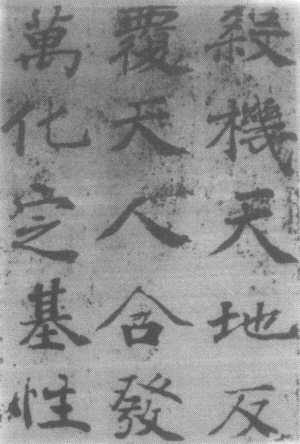 殺機天地反
覆天人合發
萬化定基性